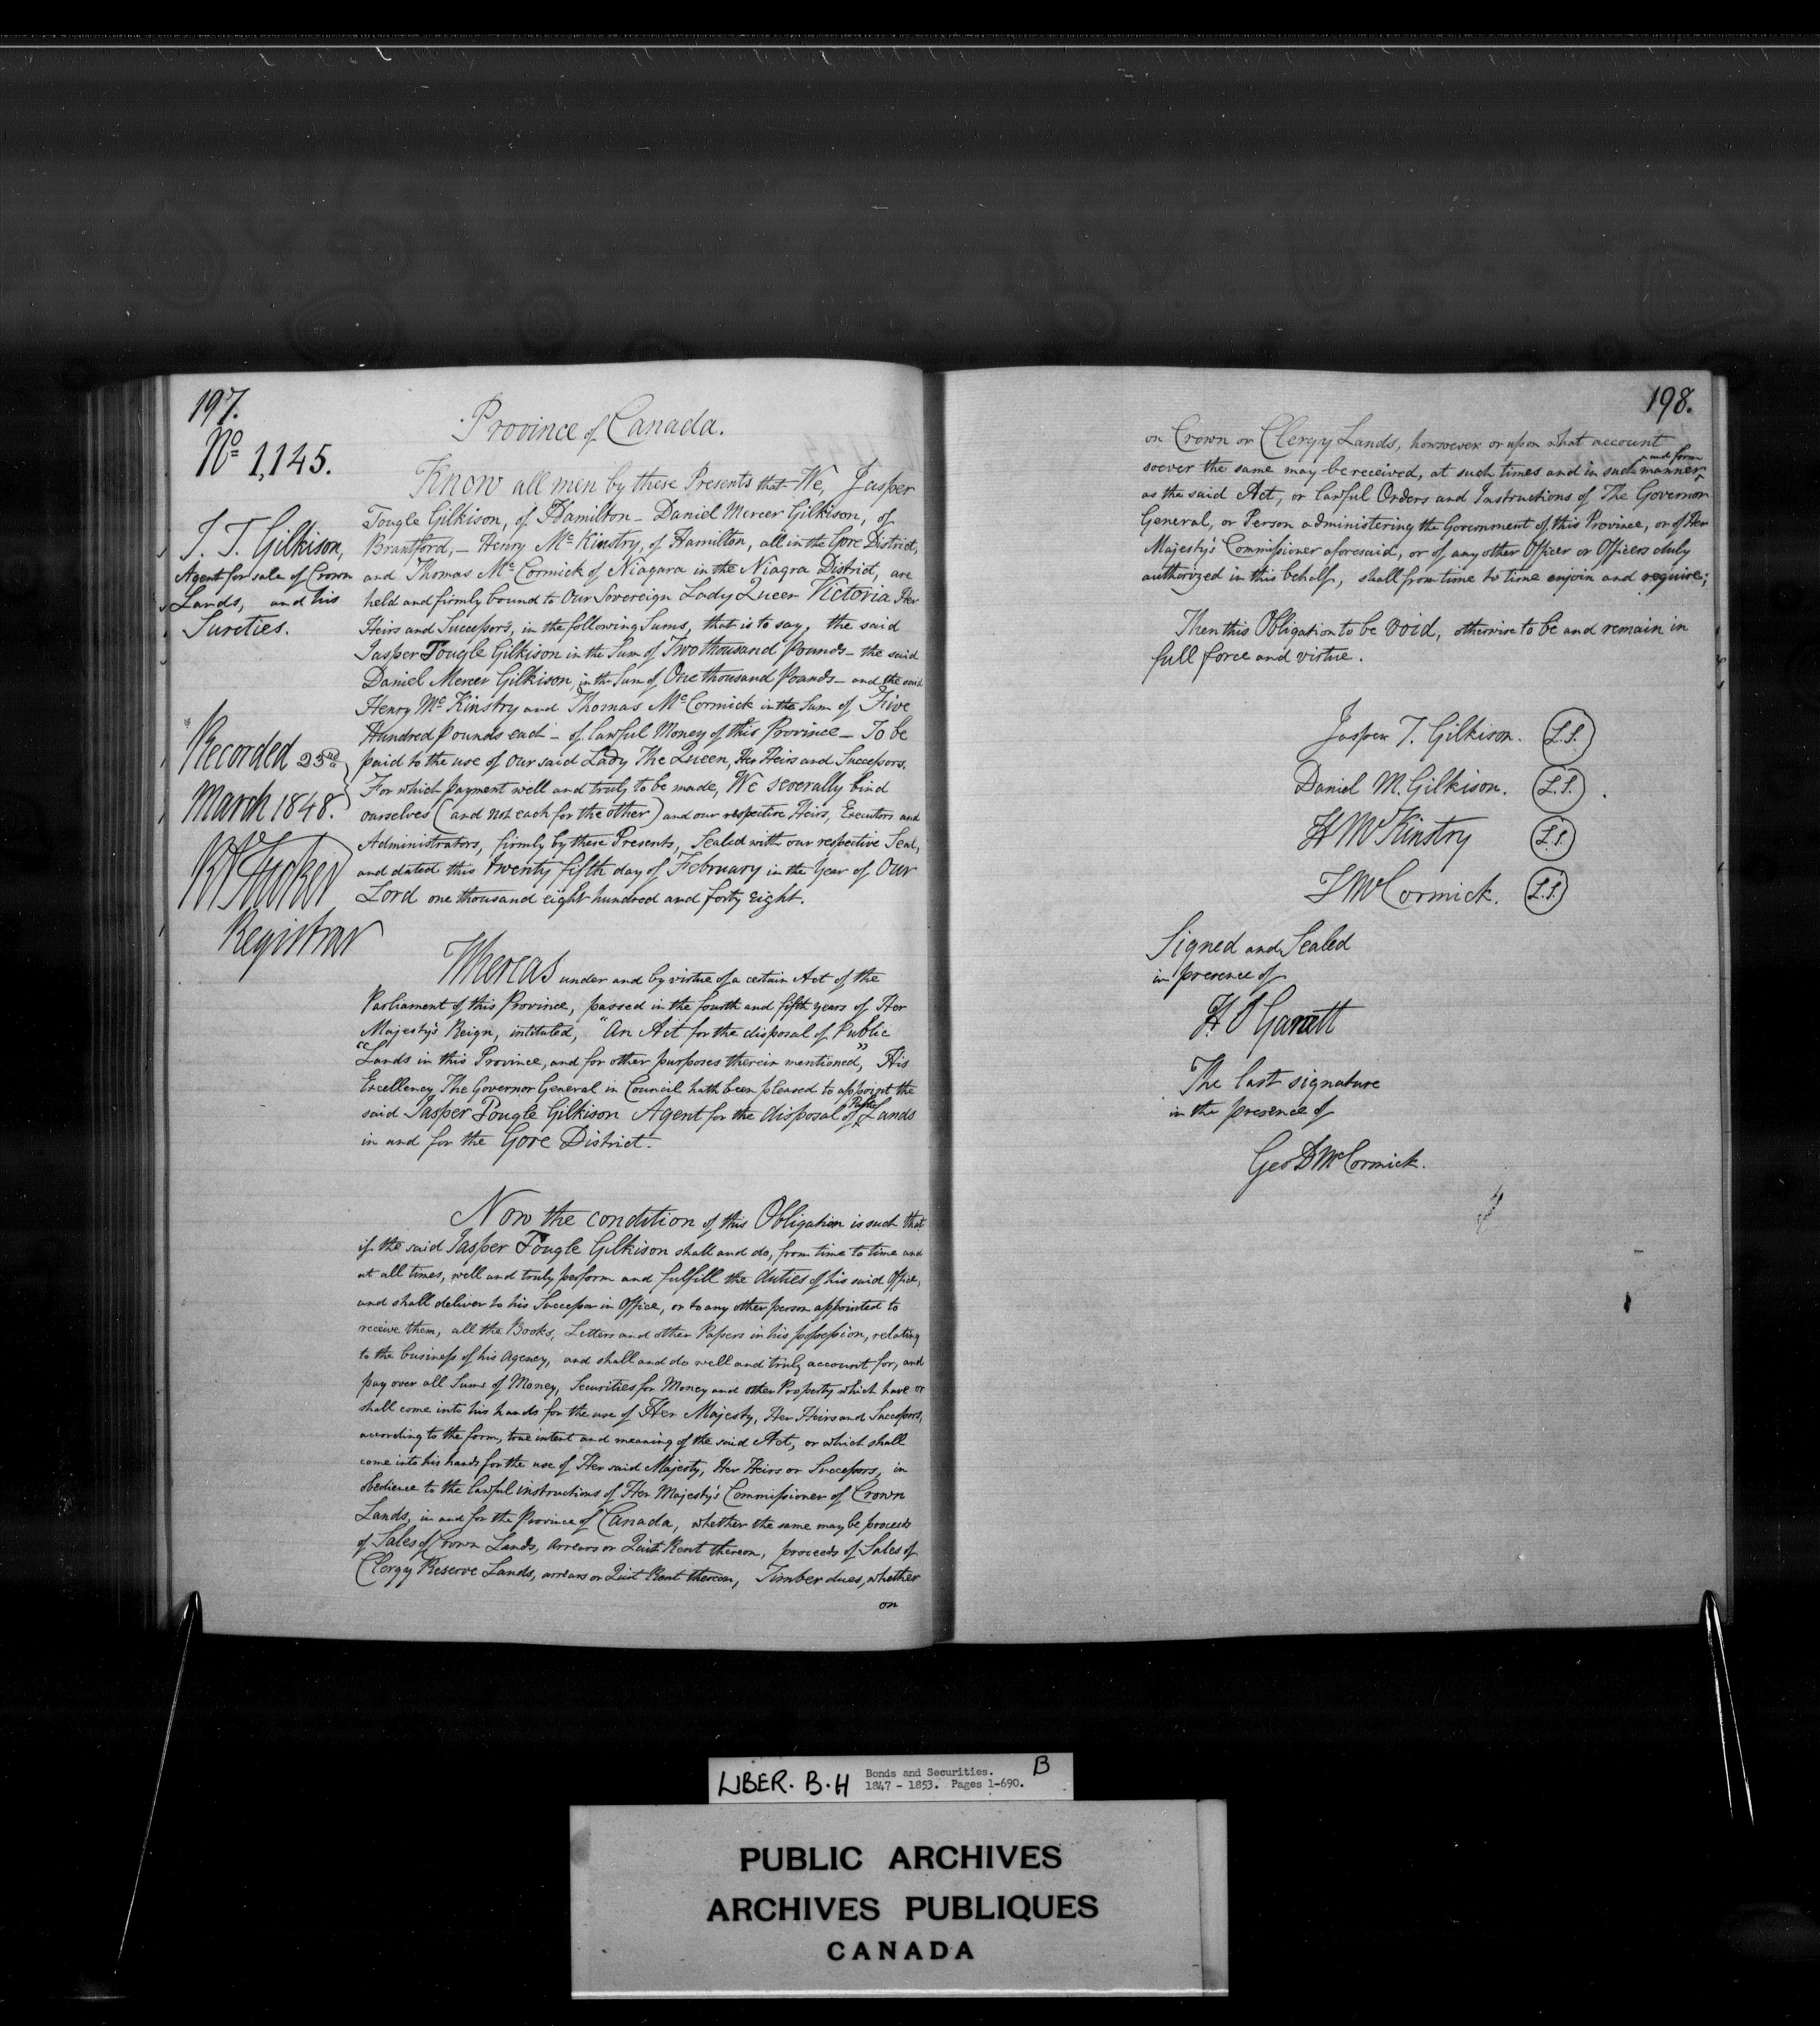 197.
No 1,145.
J. T. Gilkison,
Agent for sale of Crown
Lands, and his
Sureties.
Recorded 23rd
March 1848.
Registrar
Province of Canada.
Know all men by these Presents that We, Jasper
Tougle Gilkison, of Hamilton - Daniel Mercer Gilkison, of
Brantford, - Henry Mc Kinstry, of Hamilton, all in the Gore District,
and Thomas Mc Cormick of Niagara in the Niagra District, are
held and firmly bound to Our Sovereign Lady Queen Victoria Her
Heirs and Successors, in the following Sums, that is to say, the said
Jasper Tougle Gilkison in the Sum of Two thousand Pounds - the said
Daniel Mercer Gilkison, in the Sum of One thousand Pounds - and the said
Henry Mc Kinstry and Thomas Mc Cormick in the Sum of Five
Hundred Pounds each - of lawful Money of this Province - To be
paid to the use of our said Lady The Queen, Her Heirs and Successors.
For which Payment well and truly to be made, We severally bind
ourselves (and not each for the other) and our respective Heirs, Executors and
Administrators, firmly by these Presents, Sealed with our respective Seal,
and dated this twenty fifth day of February in the Year of Our
Lord one thousand eight hundred and forty eight.
Whereas under and by virtue of a certain Act of the
Parliament of this Province, passed in the fourth and fifth years of Her
Majesty's Reign, intituled, "An Act for the disposal of Public
"Lands in this Province, and for other purposes therein mentioned," His
Excellency The Governor General in Council hath been pleased to appoint the
said Jasper Tougle Gilkison Agent for the disposal of Public Lands
in and for the Gore District.
Now the condition of this Obligation is such that
if the said Jasper Tougle Gilkison shall and do, from time to time and
at all times, well and truly perform and fulfill the duties of his said Office,
and shall deliver to his Successor in Office, or to any other person appointed to
receive them, all the Books, Letters and other Papers in his possession, relating
to the business of his Agency, and shall and do well and truly account for, and
pay over all Sums of Money, Securities for Money and other Property which have or
shall come into his hands for the use of Her Majesty, Her Heirs and Successors,
according to the form, true intent and meaning of the said Act, or which shall
come into his hands for the use of Her said Majesty, Her Heirs or Successors, in
obedience to the lawful instructions of Her Majesty's Commissioner of Crown
Lands, in and for the Province of Canada, whether the same may be proceeds
of Sales of Crown Lands, arrears or Quit Rent thereon, proceeds of Sales of
Clergy Reserve Lands, arrears or Quit Rent thereon, Timber dues, whether
on
198.
on Crown or Clergy Lands, howsoever or upon what account
soever the same may be received, at such times and in such manner and form
as the said Act, or lawful Orders and Instructions of The Governor
General, or Person administering the Government of this Province, or of Her
Majesty's Commissioner aforesaid, or of any other Officer or Officers duly
authorized in this behalf, shall from time to time enjoin and require;
Then this Obligation to be void, otherwise to be and remain in
full force and virtue.
Jasper T. Gilkison. L.S.
Daniel M. Gilkison. L.S.
H McKinstry L.S.
T McCormick. L.S.
Signed and Sealed
in presence of
Garrett
The last signature
in the presence of
Geo D McCormick.
LIBER. B.H
Bonds and Securities. B
1847 - 1853. Pages 1-690.
PUBLIC ARCHIVES
ARCHIVES PUBLIQUES
CANADA